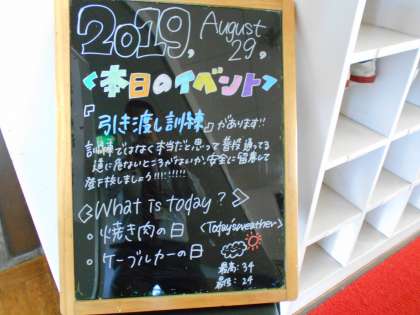 2019, August 29,
<本日のイベント>
『引き渡し訓練』があります!!
訓練ではなく本当だと思って普段通ってる
道に危ないところがないか、安全に留意して
登下校しましょう!!!!!!!
◇What is today?◇
・焼き肉の日 <Today'sweather>
・ケーブルカーの日
最高:34
最低:24